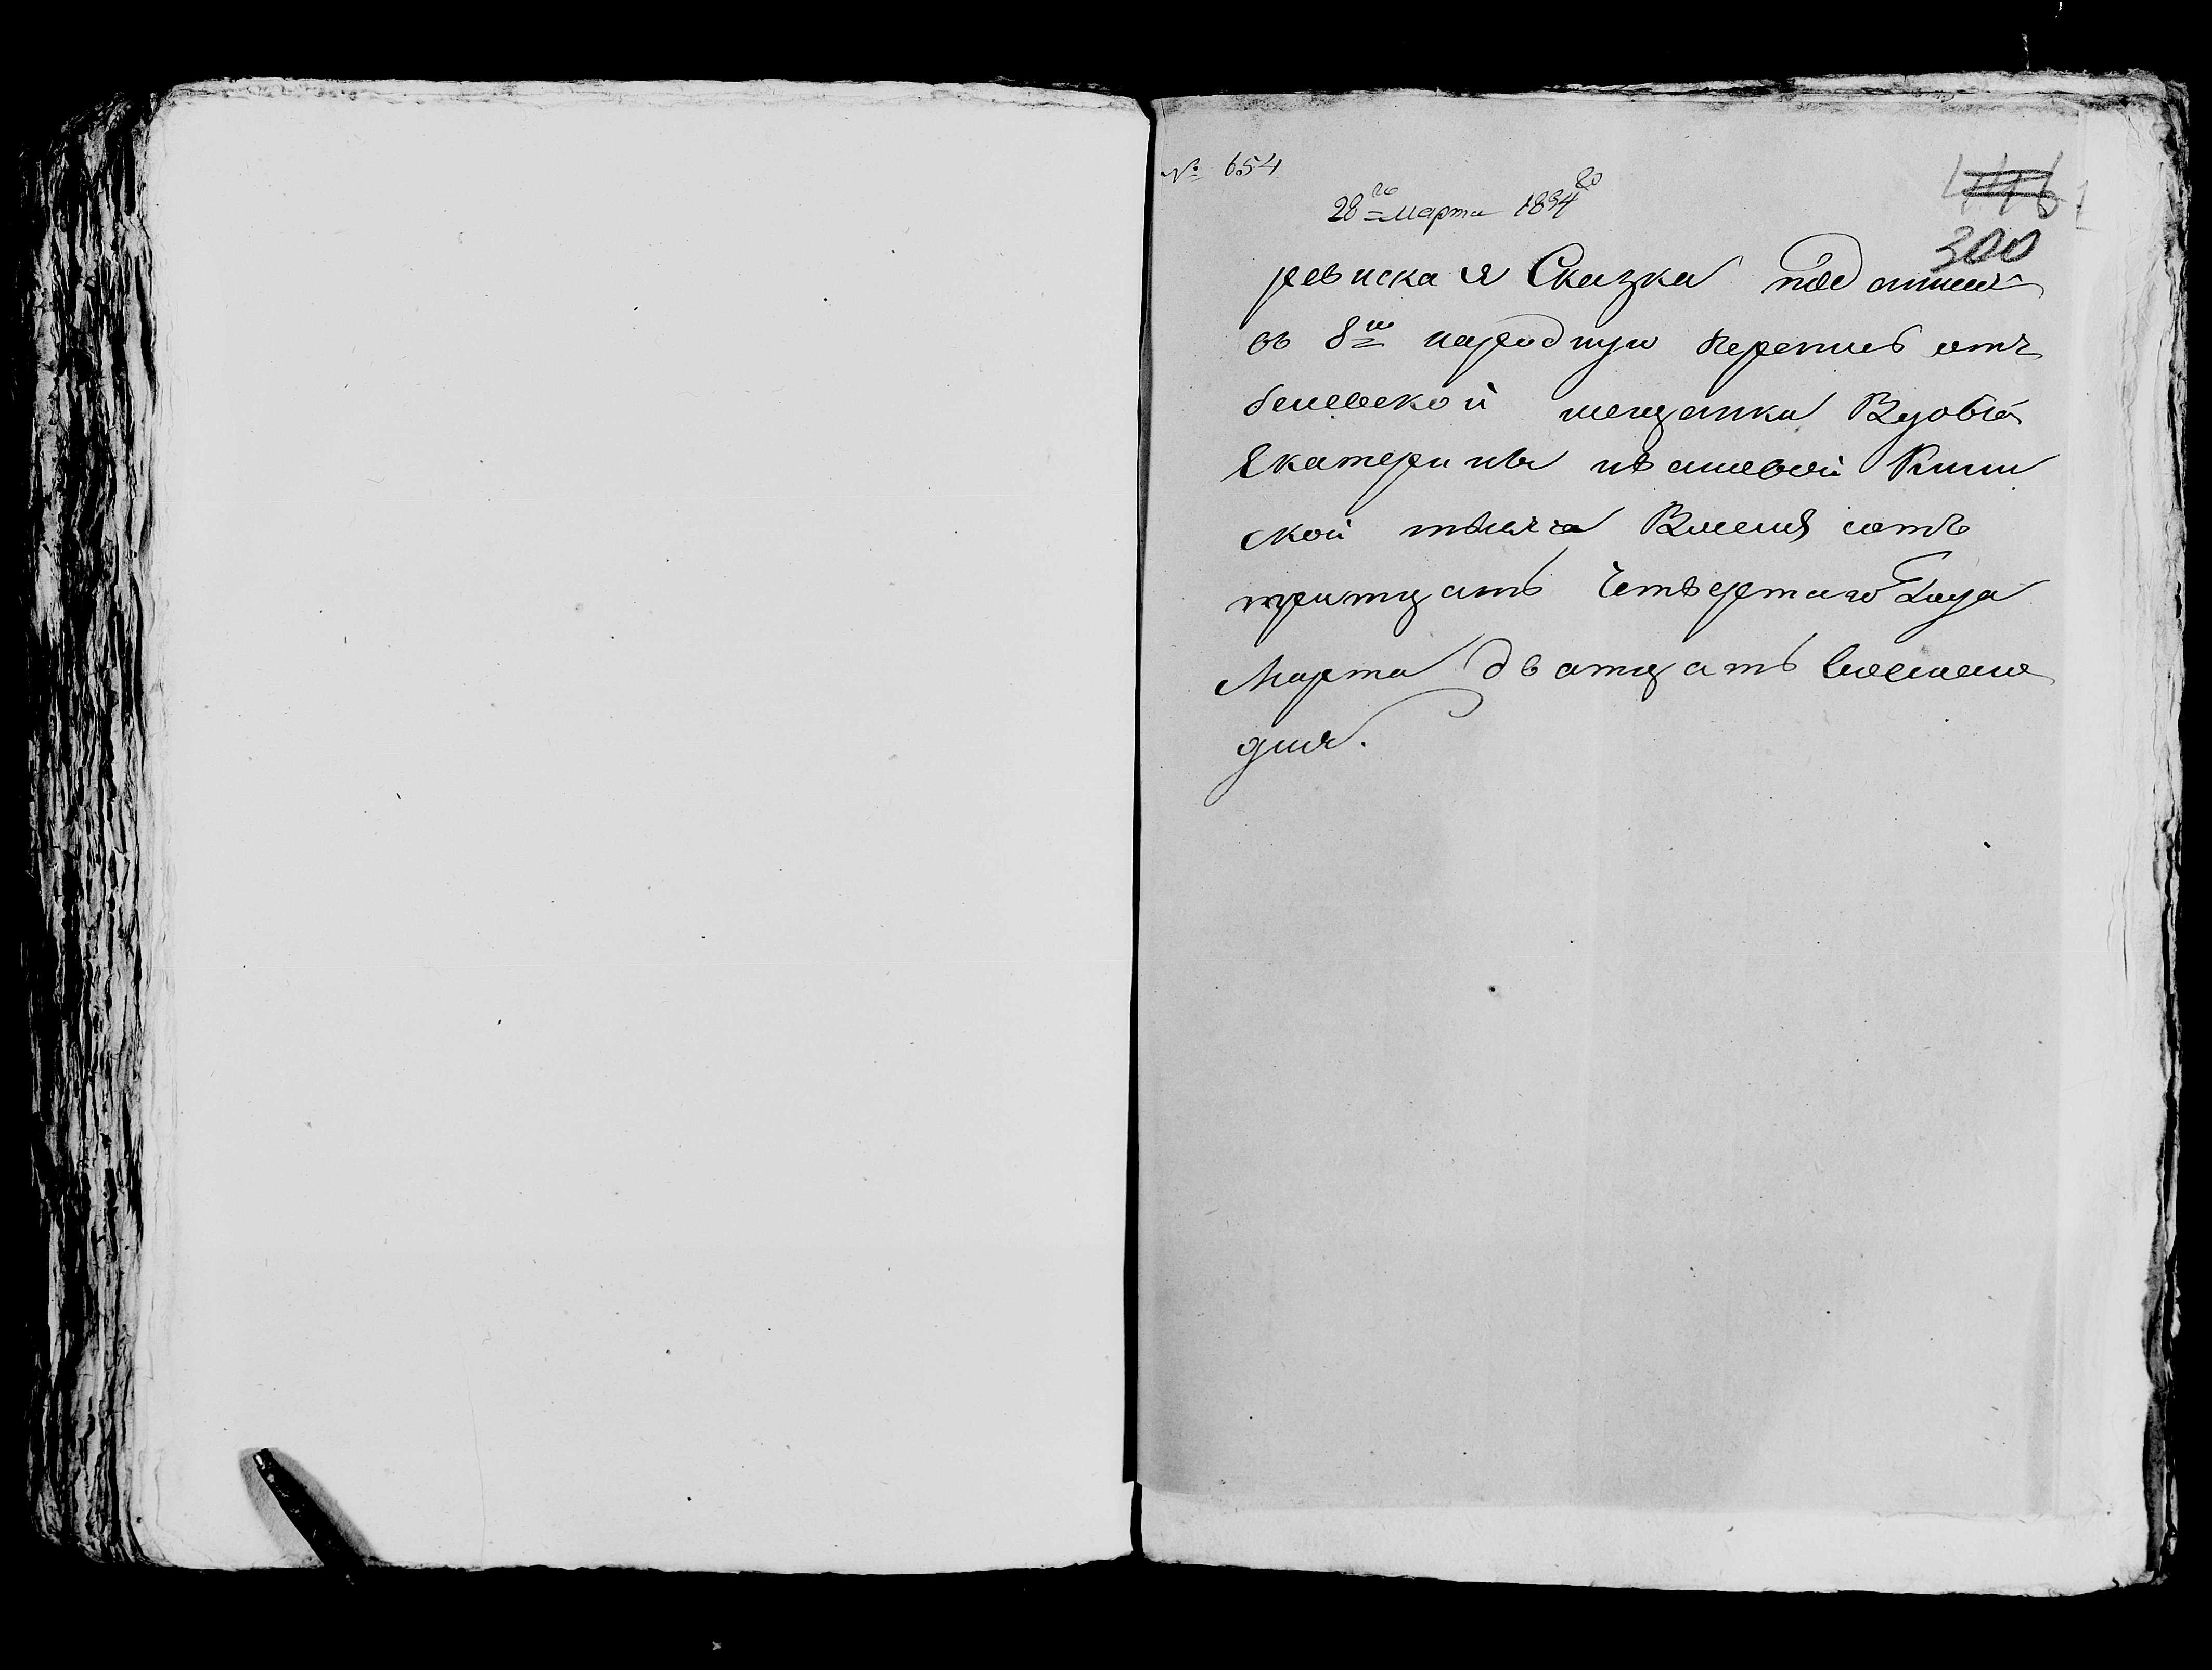 № 654
446
28го Марта 1834го
300
ревиская Сказка под
въ 8ю народную Перепис отъ
белевской мещанки Вдовы
Екатерины ивановой
ской тысяча Восемь сотъ
тритцать Четвертаго Года
Марта дватцать
дня.